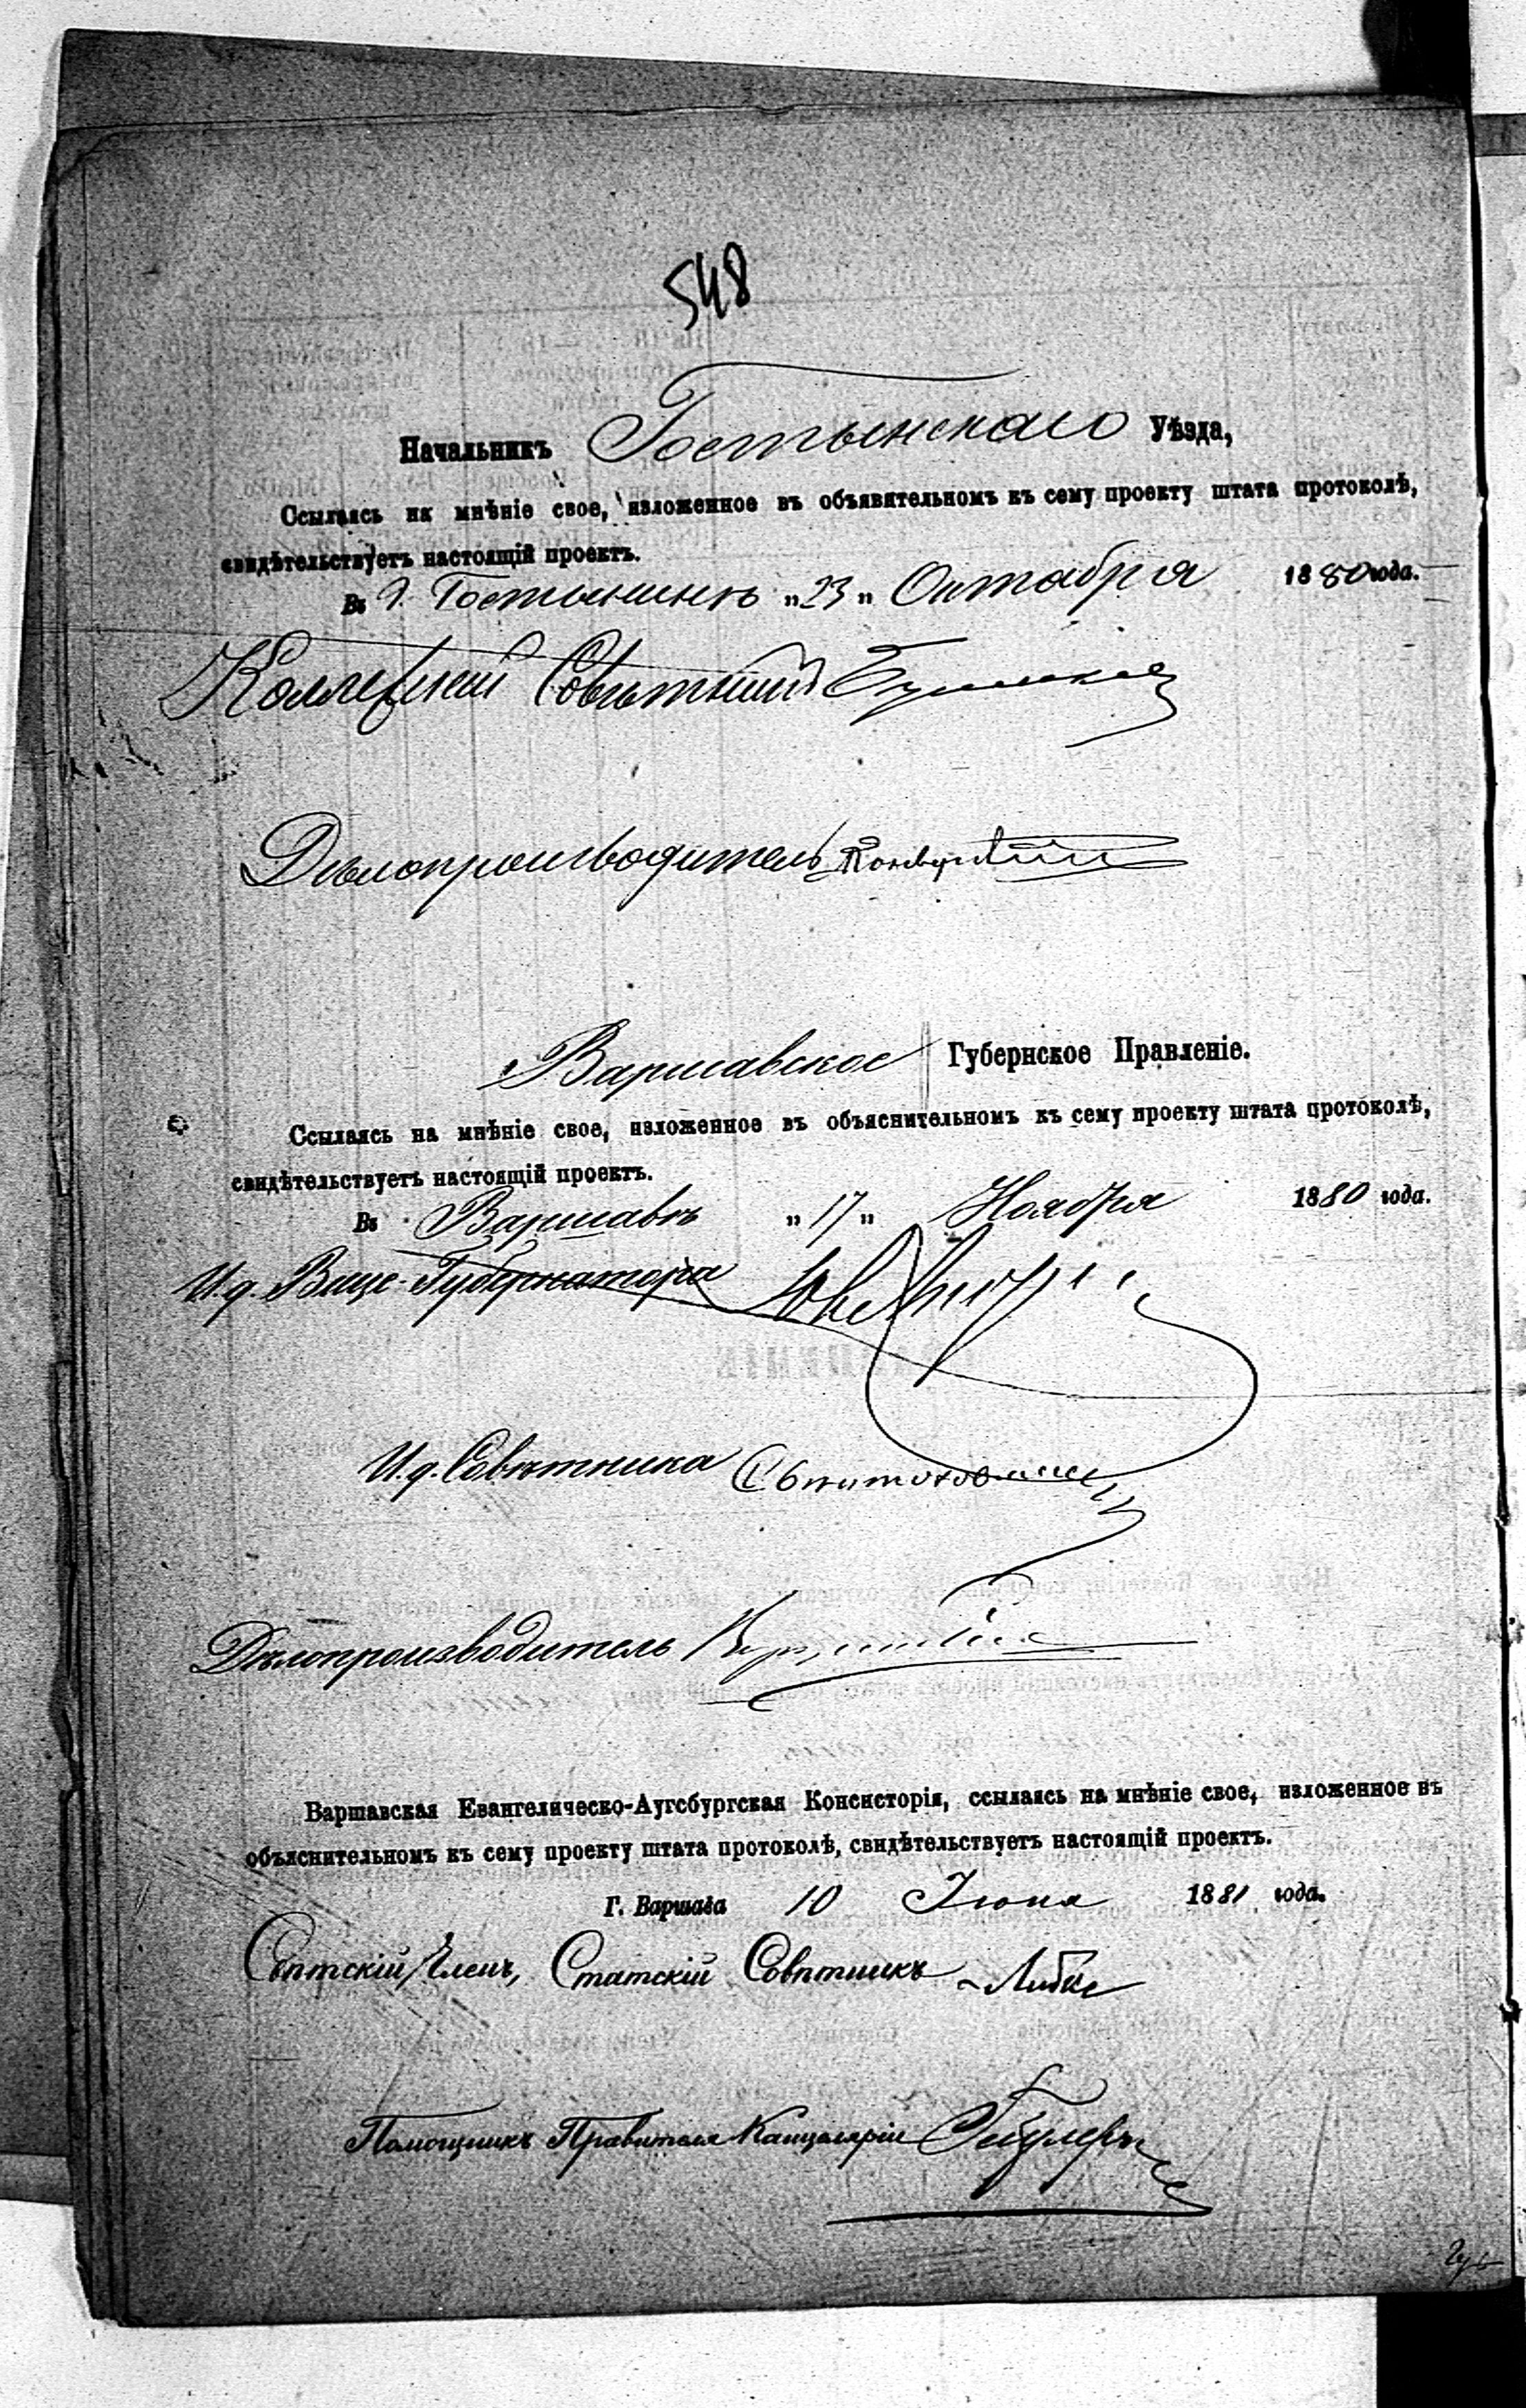 548
Начальникъ Гостынскаго Уѣзда,
Ссылаясь на мнѣніе свое, изложенное въ объявятельномъ къ сему проекту штата протоколѣ,
свидѣтельствуетъ настоящій проектъ.
Въ г. Гостынинѣ „23„ Октября 1880 года.
Коллежскій Совѣтникъ
Дѣлопроизводитель
Варшавское Губернское Правленіе.
Ссылаясь на мнѣніе свое, изложенное въ объяснительномъ къ сему проекту штата протоколѣ,
свидѣтельствуетъ настоящій проектъ.
Въ Варшавѣ „17„ Ноября 1880 года.
И.д. Вице-Губернатора
И.д. Совѣтника
Дѣлопроизводитель
Варшавская Евангелическо-Аугсбургская Консисторія, ссылаясь на мнѣніе свое, изложенное въ
объяснительномъ къ сему проекту штата протоколѣ, свидѣтельствуетъ настоящій проектъ.
Г. Варшава 10 Іюня 1881 года.
Свѣтскій Членъ, Статскій Совѣтникъ
Помощникъ Правителя Канцеляріи